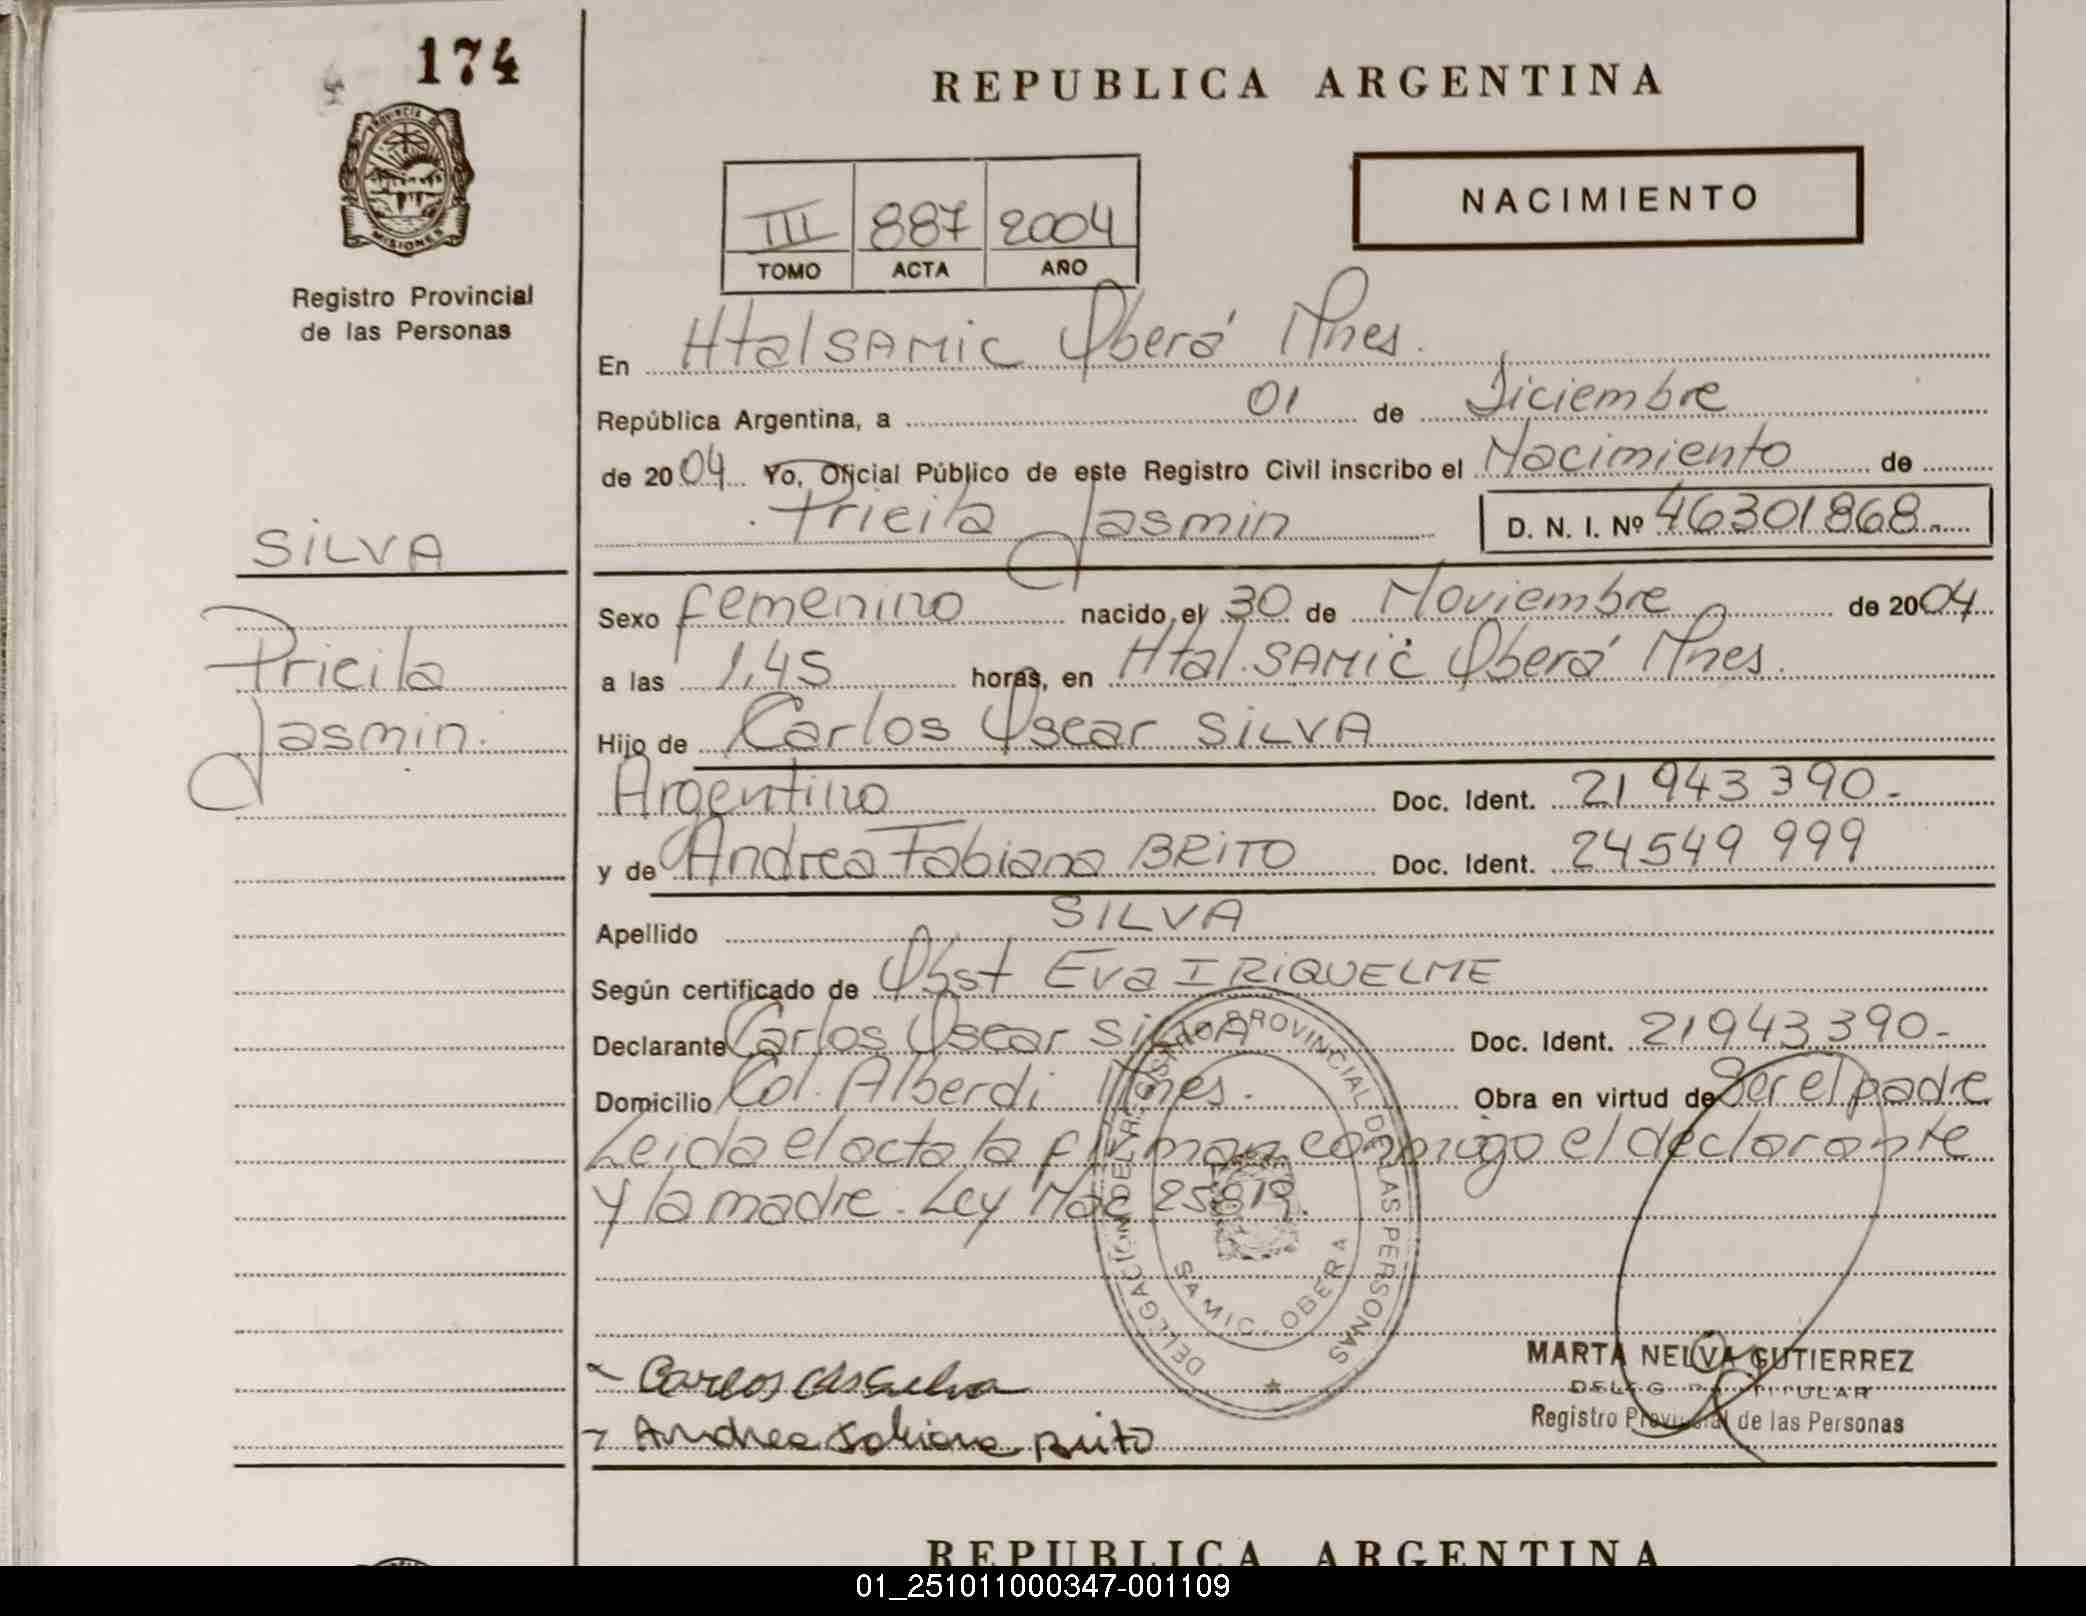 174
PROVINCIA DE
MISIONES
Registro Provincial
de las Personas
SILVA
Pricila
Jasmin.
REPUBLICA ARGENTINA
NACIMIENTO
III 887 2004
TOMO ACTA AÑO
En Htal SAMIC Oberá Mnes.
República Argentina, a 01 de Diciembre
de 2004 Yo, Oficial Público de este Registro Civil inscribo el Nacimiento de
Pricila Jasmin D. N. I. Nº 46301868.
Sexo femenino nacido el 30 de Noviembre de 2004
a las 1,45 horas, en Htal. SAMIC Oberá Mnes.
Hijo de Carlos Oscar SILVA
Argentino Doc. Ident. 21 943 390.-
y de Andrea Fabiana BRITO Doc. Ident. 24549 999
Apellido SILVA
Según certificado de Obst Eva I RIQUELME
Declarante Carlos Oscar SILVA Doc. Ident. 21943390-
Domicilio Col. Alberdi Mnes. Obra en virtud de Ser el padre
Leida el acta la firman conmigo el declarante
y la madre. Ley Nac 25819.
DELEGACION DEL REGISTRO PROVINCIAL DE LAS PERSONAS
SAMIC - OBERA
MARTA NELVA GUTIERREZ
DELEGADA TITULAR
Registro Provincial de las Personas
Carlos Silva
Andrea Fabiana Brito
REPUBLICA ARGENTINA
01_251011000347-001109